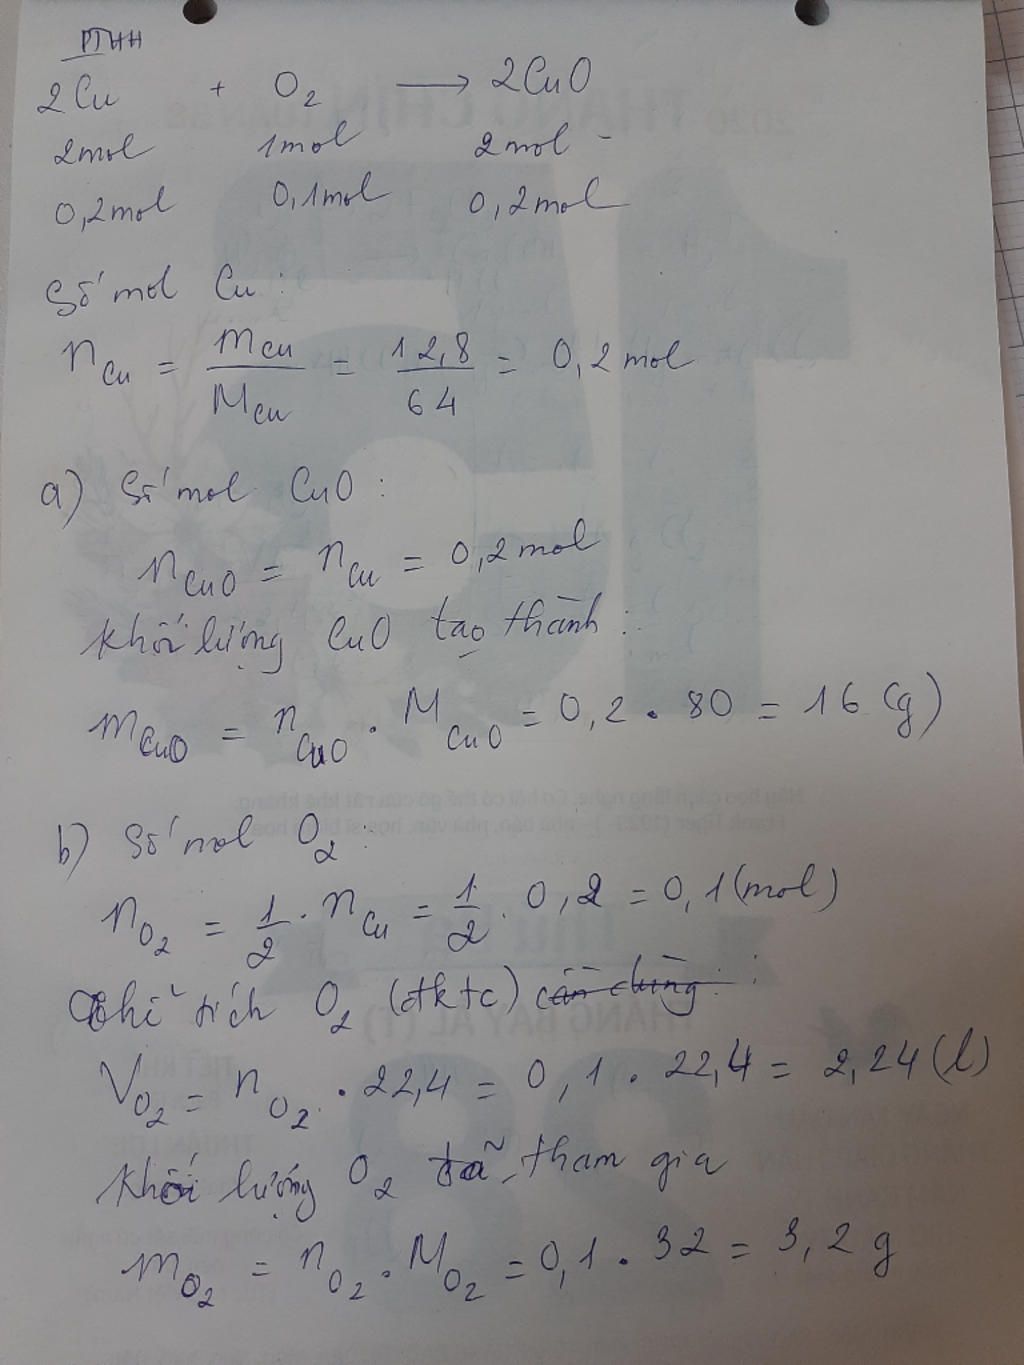 PTHH
2Cu + O2 → 2CuO
2mol 1mol 2mol
0,2mol 0,1mol 0,2mol
Số mol Cu:
nCu = mCu / MCu = 12,8 / 64 = 0,2 mol
a) Số mol CuO:
nCuO = nCu = 0,2 mol
Khối lượng CuO tạo thành:
mCuO = nCuO . MCuO = 0,2 . 80 = 16 (g)
b) Số mol O2:
nO2 = 1/2 . nCu = 1/2 . 0,2 = 0,1 (mol)
Thể tích O2 (đktc) cần dùng:
VO2 = nO2 . 22,4 = 0,1 . 22,4 = 2,24 (l)
Khối lượng O2 đã tham gia
mO2 = nO2 . MO2 = 0,1 . 32 = 3,2 g